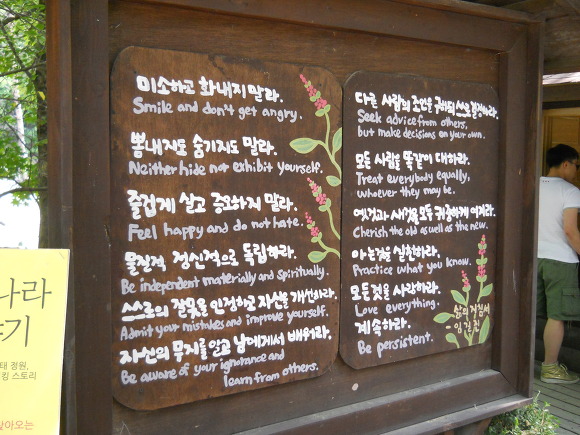 미소하고 화내지 말라.
Smile and don't get angry.
뽐내지도 숨기지도 말라.
Neither hide not exhibit yourself.
즐겁게 살고 증오하지 말라.
Feel happy and do not hate.
물질적 정신적으로 독립하라.
Be independent materially and spiritually.
스스로의 잘못을 인정하고 자신을 개선하라.
Admit your mistakes and improve yourself.
자신의 무지를 알고 남에게서 배워라.
Be aware of your ignorance and
learn from others.
다른 사람의 조언을 구하되 스스로 결정하라.
Seek advice from others,
but make decisions on your own.
모든 사람을 똑같이 대하라.
Treat everybody equally,
whoever they may be.
옛것과 새것을 모두 귀중하게 여겨라.
Cherish the old as well as the new.
아는 것을 실천하라.
Practice what you know.
모든 것을 사랑하라.
Love everything.
계속하라.
Be persistent.
나라
기
태 정원,
킹 스토리
찾아오는